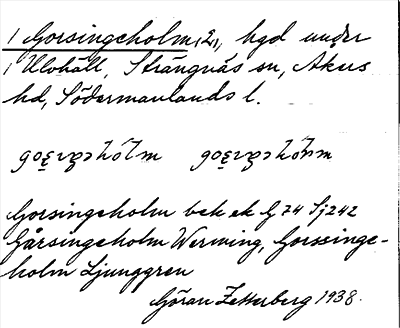 1 Gorsingeholm, 2, hgd under
1 Ulvhäll, Strängnäs sn, Åkers
hd, Södermanlands l.
Gorsingeholm bek ek G 74 Sj 242
Gårsingeholm Werming, Gorssinge-
holm Ljunggren
Göran Zetterberg 1938.